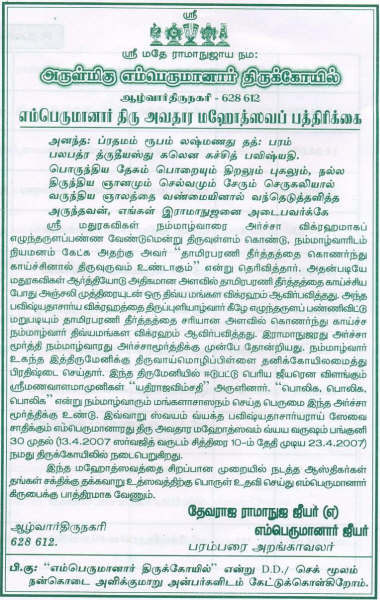 ஸ்ரீ
ஸ்ரீ மதே ராமாநுஜாய நம:
அருள்மிகு எம்பெருமானார் திருக்கோயில்
ஆழ்வார்திருநகரி - 628 612
எம்பெருமானார் திரு அவதார மஹோத்ஸவப் பத்திரிக்கை
அனந்த: ப்ரதமம் ரூபம் லஷ்மணது தத்: பரம்
பலபத்ர த்ருதீயஸ்து கலௌ கச்சித் பவிஷ்யதி.
பொருந்திய தேகம் பொறையும் திறலும் புகழும், நல்ல
திருந்திய ஞானமும் செல்வமும் சேரும் செருகலியால்
வருந்திய ஞாலத்தை வண்மையினால் வந்தெடுத்தளித்த
அருந்தவன், எங்கள் இராமாநுஜனை அடைபவர்க்கே
ஸ்ரீ மதுரகவிகள் நம்மாழ்வாரை அர்ச்சா விக்ரஹமாகப்
எழுந்தருளப்பண்ண வேண்டுமென்று திருவுள்ளம் கொண்டு, நம்மாழ்வாரிடம்
நியமனம் கேட்க அதற்கு அவர் "தாமிரபரணி தீர்த்தத்தை கொணர்ந்து
காய்ச்சினால் திருவுருவம் உண்டாகும்" என்று தெரிவித்தார். அதன்படியே
மதுரகவிகள் ஆர்த்தியோடு அதிகமான அளவில் தாமிரபரணி தீர்த்தத்தை காய்ச்சிய
போது அஞ்சலி முத்திரையுடன் ஒரு திவ்ய மங்கள விக்ரஹம் ஆவிர்பவித்தது. அந்த
பவிஷ்யதாசார்ய விக்ரஹத்தை திருப்புளியாழ்வார் கீழே எழுந்தருளப் பண்ணிவிட்டு
மறுபடியும் தாமிரபரணி தீர்த்தத்தை சரியான அளவில் கொணர்ந்து காய்ச்ச
நம்மாழ்வார் திவ்யமங்கள விக்ரஹம் ஆவிர்பவித்தது. இராமாநுஜரது அர்ச்சா
மூர்த்தி நம்மாழ்வாரது அர்ச்சாமூர்த்திக்கு முன்பே தோன்றியது. நம்மாழ்வார்
உகந்த இத்திருமேனிக்கு திருவாய்மொழிப்பிள்ளை தனிக்கோயிலமைத்து
பிரதிஷ்டை செய்தார். இந்த திருமேனியில் ஈடுபட்டு பெரிய ஜீயரென விளங்கும்
ஸ்ரீமணவாளமாமுனிகள் "யதிராஜவிம்சதி" அருளினார். "பொலிக, பொலிக,
பொலிக" என்று நம்மாழ்வாரும் மங்களாசாஸநம் செய்த பெருமை இந்த அர்ச்சா
மூர்த்திக்கு உண்டு. இவ்வாறு ஸ்வயம் வ்யக்த பவிஷ்யதாசார்யராய் ஸேவை
சாதிக்கும் எம்பெருமானாரது திரு அவதார மஹோத்ஸவம் வ்யய வருஷம் பங்குனி
30 முதல் (13.4.2007 ஸர்வஜித் வருடம் சித்திரை 10-ம் தேதி முடிய 23.4.2007)
நமது திருக்கோயிலில் நடைபெறுகிறது.
இந்த மஹோத்ஸவத்தை சிறப்பான முறையில் நடத்த ஆஸ்திகர்கள்
தங்கள் சக்திக்கு தக்கவாறு உத்ஸவத்திற்கு பொருள் உதவி செய்து எம்பெருமானார்
கிருபைக்கு பாத்திரமாக வேணும்.
தேவராஜ ராமாநுஜ ஜீயர் (எ)
ஆழ்வார்திருநகரி
எம்பெருமானார் ஜீயர்
628 612.
பரம்பரை அறங்காவலர்
பி.கு: "எம்பெருமானார் திருக்கோயில்" என்று D.D./ செக் மூலம்
நன்கொடை அளிக்குமாறு அன்பர்களிடம் கேட்டுக்கொள்கிறோம்.